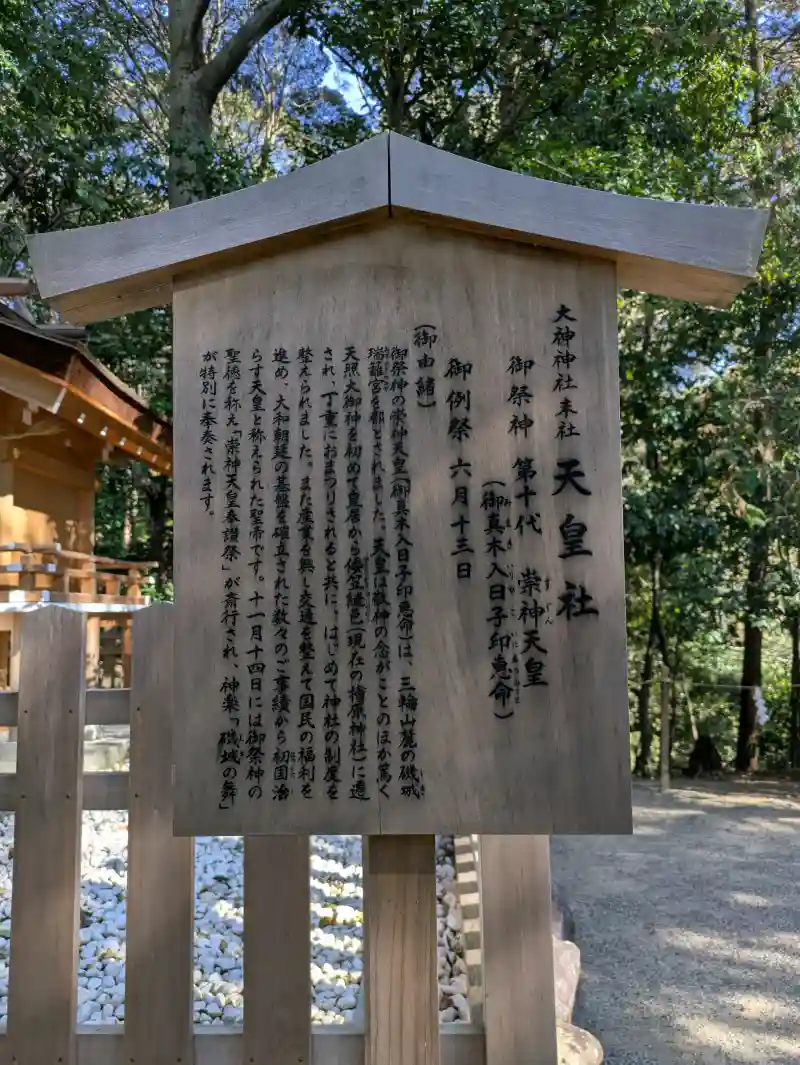 大神神社末社 天皇社
御祭神 第十代 崇神天皇
すじん
(御真木入日子印恵命)
御例祭 六月十三日
(御由緒)
御祭神の崇神天皇(御真木入日子印恵命)は、三輪山麓の磯城
瑞籬宮を都とされました。天皇は敬神の念がことのほか篤く
天照大御神を初めて皇居から倭笠縫邑(現在の檜原神社)に遷
され、丁重におまつりされると共に、はじめて神社の制度を
整えられました。また産業を興し交通を整えて国民の福利を
進め、大和朝廷の基盤を確立された数々のご事績から初国治
らす天皇と称えられた聖帝です。十一月十四日には御祭神の
聖徳を称え「崇神天皇奉讃祭」が斎行され、神楽「磯城の舞」
が特別に奉奏されます。